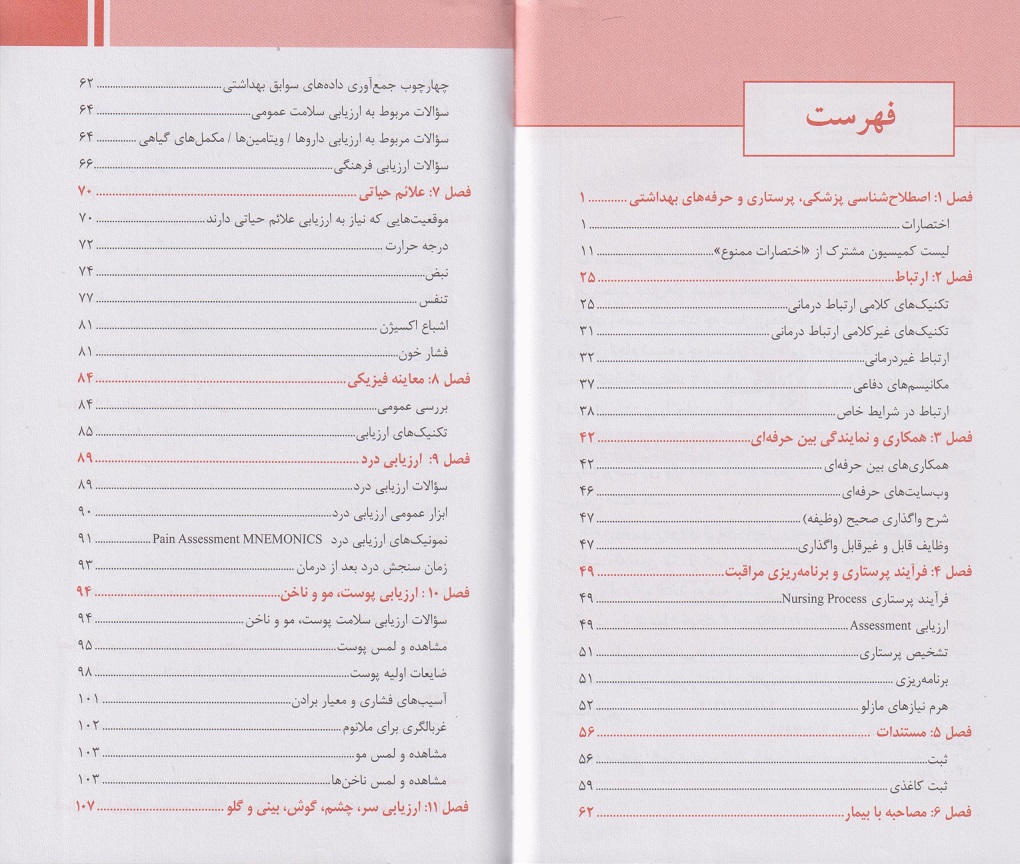 فهرست
فصل ۱: اصطلاح‌شناسی پزشکی، پرستاری و حرفه‌های بهداشتی ........... ۱
اختصارات ........... ۱
لیست کمیسیون مشترک از «اختصارات ممنوع» ........... ۱۱
فصل ۲: ارتباط ........... ۲۵
تکنیک‌های کلامی ارتباط درمانی ........... ۲۵
تکنیک‌های غیرکلامی ارتباط درمانی ........... ۳۱
ارتباط غیردرمانی ........... ۳۲
مکانیسم‌های دفاعی ........... ۳۷
ارتباط در شرایط خاص ........... ۳۸
فصل ۳: همکاری و نمایندگی بین حرفه‌ای ........... ۴۲
همکاری‌های بین حرفه‌ای ........... ۴۲
وب‌سایت‌های حرفه‌ای ........... ۴۶
شرح واگذاری صحیح (وظیفه) ........... ۴۷
وظایف قابل و غیرقابل واگذاری ........... ۴۷
فصل ۴: فرآیند پرستاری و برنامه‌ریزی مراقبت ........... ۴۹
فرآیند پرستاری Nursing Process ........... ۴۹
ارزیابی Assessment ........... ۴۹
تشخیص پرستاری ........... ۵۱
برنامه‌ریزی ........... ۵۱
هرم نیازهای مازلو ........... ۵۲
فصل ۵: مستندات ........... ۵۶
ثبت ........... ۵۶
ثبت کاغذی ........... ۵۹
فصل ۶: مصاحبه با بیمار ........... ۶۲
چهارچوب جمع‌آوری داده‌های سوابق بهداشتی ........... ۶۲
سؤالات مربوط به ارزیابی سلامت عمومی ........... ۶۴
سؤالات مربوط به ارزیابی داروها / ویتامین‌ها / مکمل‌های گیاهی ........... ۶۴
سؤالات ارزیابی فرهنگی ........... ۶۶
فصل ۷: علائم حیاتی ........... ۷۰
موقعیت‌هایی که نیاز به ارزیابی علائم حیاتی دارند ........... ۷۰
درجه حرارت ........... ۷۲
نبض ........... ۷۴
تنفس ........... ۷۷
اشباع اکسیژن ........... ۸۱
فشار خون ........... ۸۱
فصل ۸: معاینه فیزیکی ........... ۸۴
بررسی عمومی ........... ۸۴
تکنیک‌های ارزیابی ........... ۸۵
فصل ۹: ارزیابی درد ........... ۸۹
سؤالات ارزیابی درد ........... ۸۹
ابزار عمومی ارزیابی درد ........... ۹۰
نمونیک‌های ارزیابی درد Pain Assessment MNEMONICS ........... ۹۱
زمان سنجش درد بعد از درمان ........... ۹۳
فصل ۱۰: ارزیابی پوست، مو و ناخن ........... ۹۴
سؤالات ارزیابی سلامت پوست، مو و ناخن ........... ۹۴
مشاهده و لمس پوست ........... ۹۵
ضایعات اولیه پوست ........... ۹۸
آسیب‌های فشاری و معیار برادن ........... ۱۰۱
غربالگری برای ملانوم ........... ۱۰۲
مشاهده و لمس مو ........... ۱۰۳
مشاهده و لمس ناخن‌ها ........... ۱۰۳
فصل ۱۱: ارزیابی سر، چشم، گوش، بینی و گلو ........... ۱۰۷